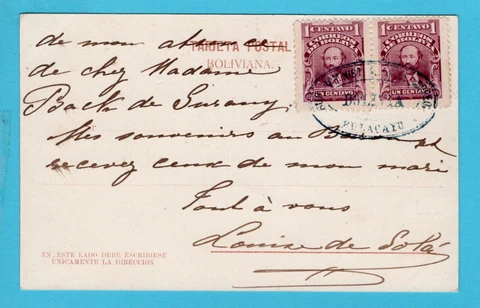 de mon absence
TARJETA POSTAL
de chez Madame
BOLIVIANA.
Back de Surany.
Mes souvenirs au Baron et
recevez ceux de mon mari
Tout à vous
Louise de Solá
EN ESTE LADO DEBE ESCRIBIRSE
UNICAMENTE LA DIRECCION
1 CENTAVO 1
CORREOS
BOLIVIA
UN CENTAVO
1 CENTAVO 1
CORREOS
BOLIVIA
UN CENTAVO
PULACAYO